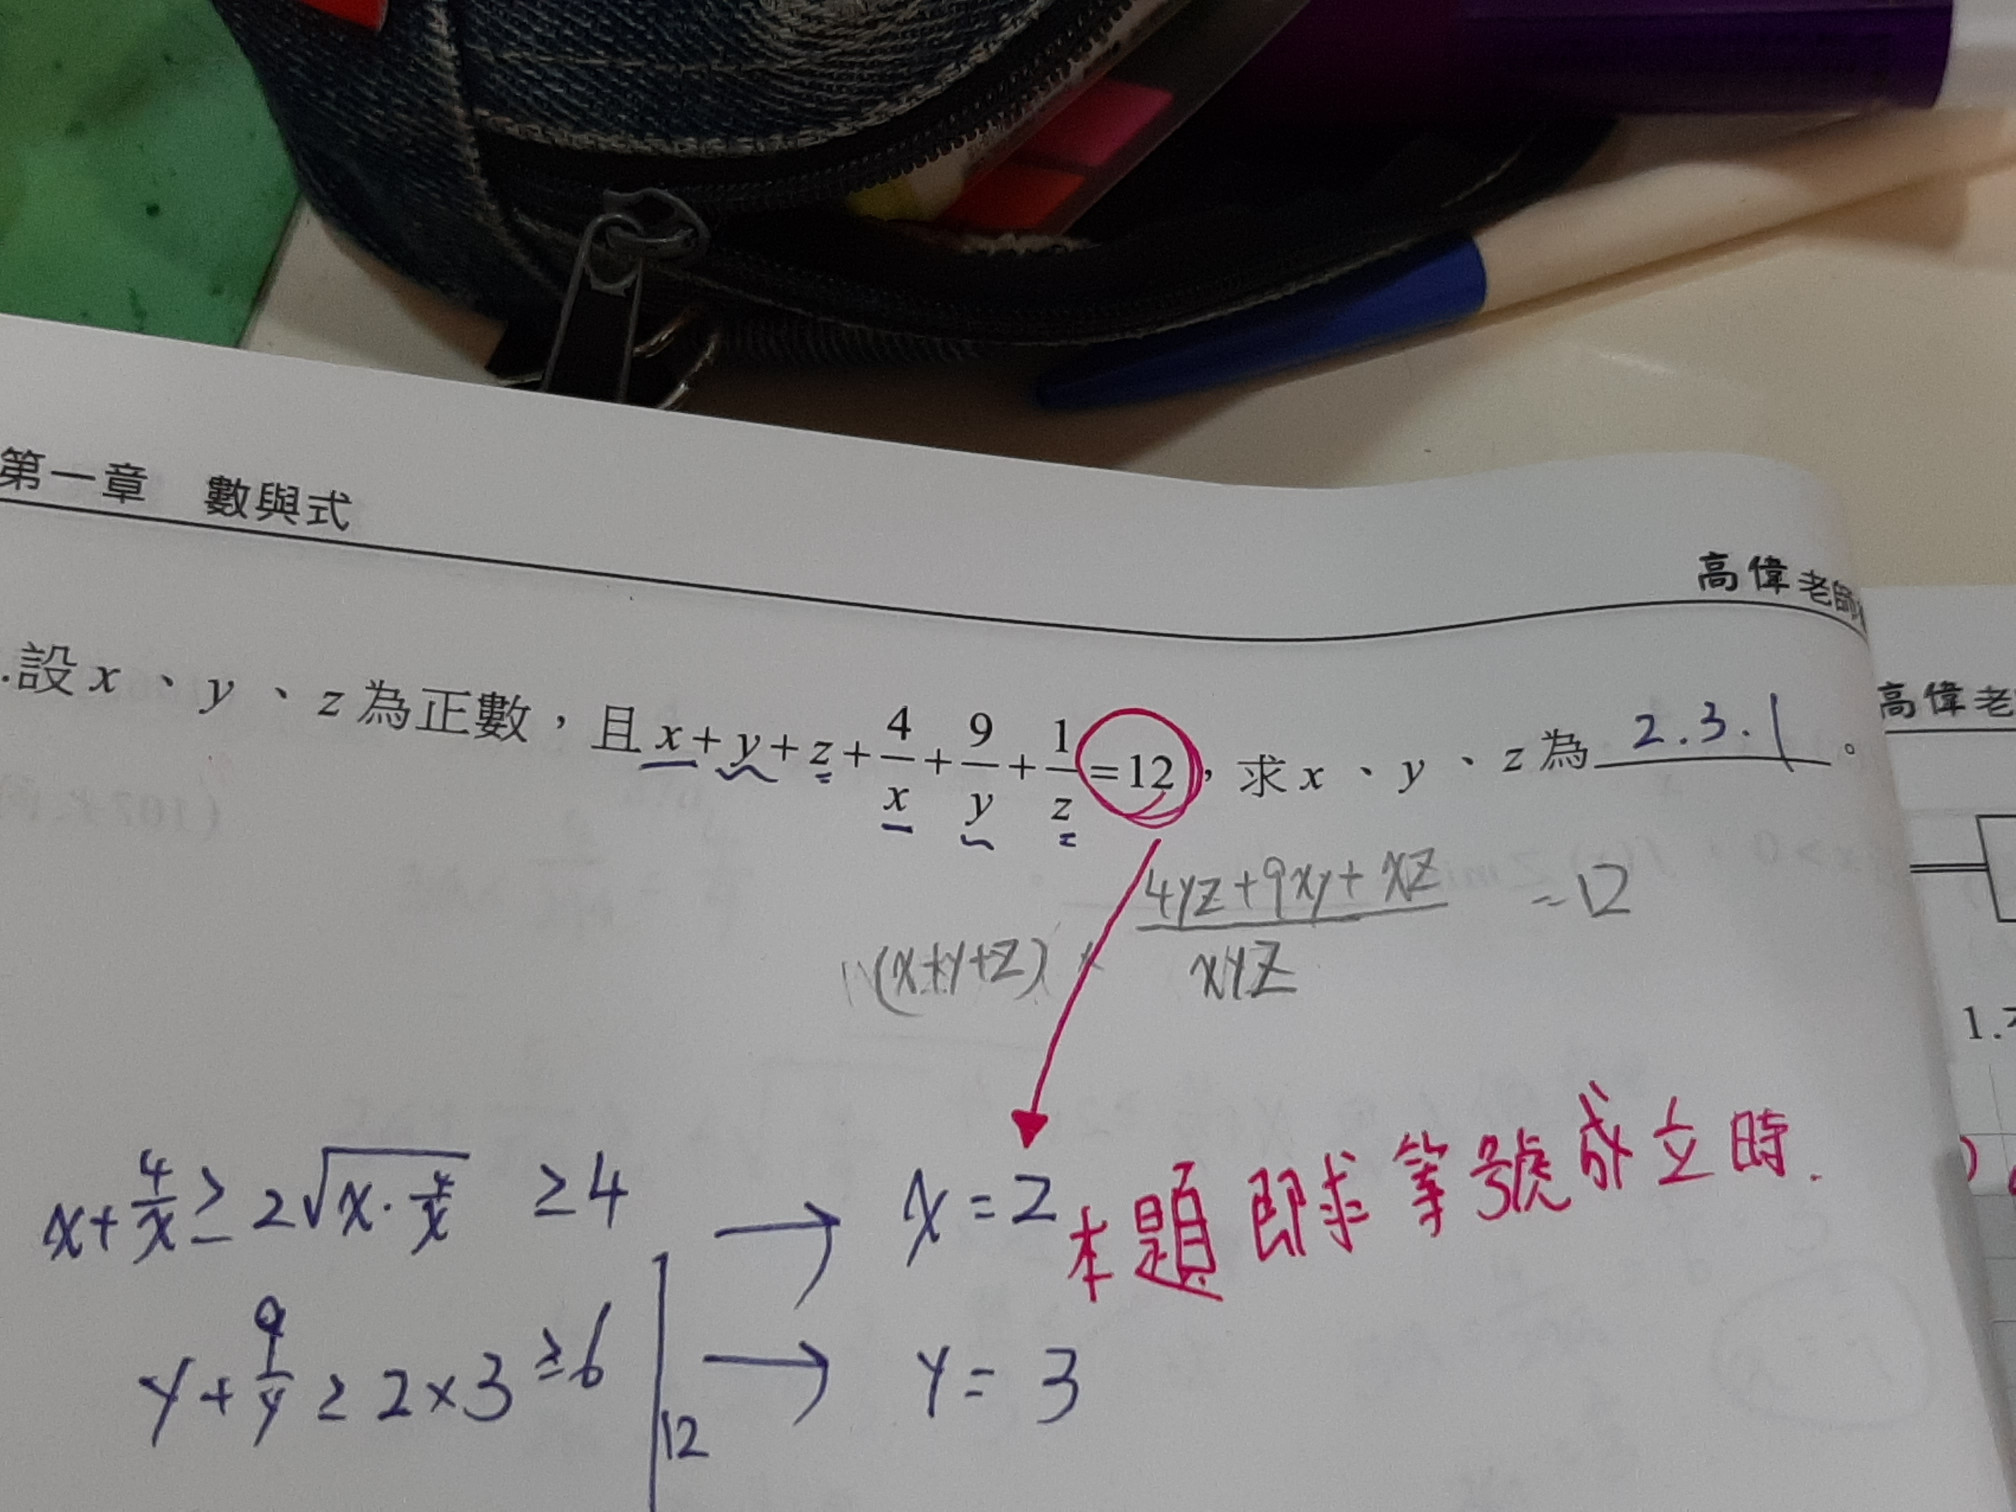 第一章 數與式
高偉老師
.設 x、y、z 為正數，且 x+y+z+4/x+9/y+1/z=12，求 x、y、z 為 2.3.1。
高偉老
(x+y+z) (4yz+9xy+xz)/xyz =12
1.
x+4/x≥2√x·4/x ≥4 → x=2 本題即求等號成立時.
y+9/y≥2×3≥6 → y=3
12